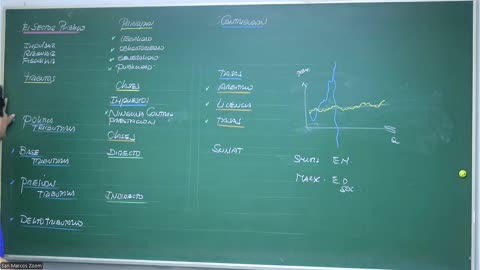 El Sector Público
Tributos
Política
Tributaria
Base
Tributaria
Presión
Tributaria
Delito Tributario
Principios
Legalidad
Obligatoriedad
Publicidad
Clases
Impuestos
Ninguna Contra
prestación
Clases
Directo
Indirecto
Contribución
Tasas
Arbitrio
Licencia
Tasas
Sunat
Smith: EM
Marx: ED
San Marcos Zoom